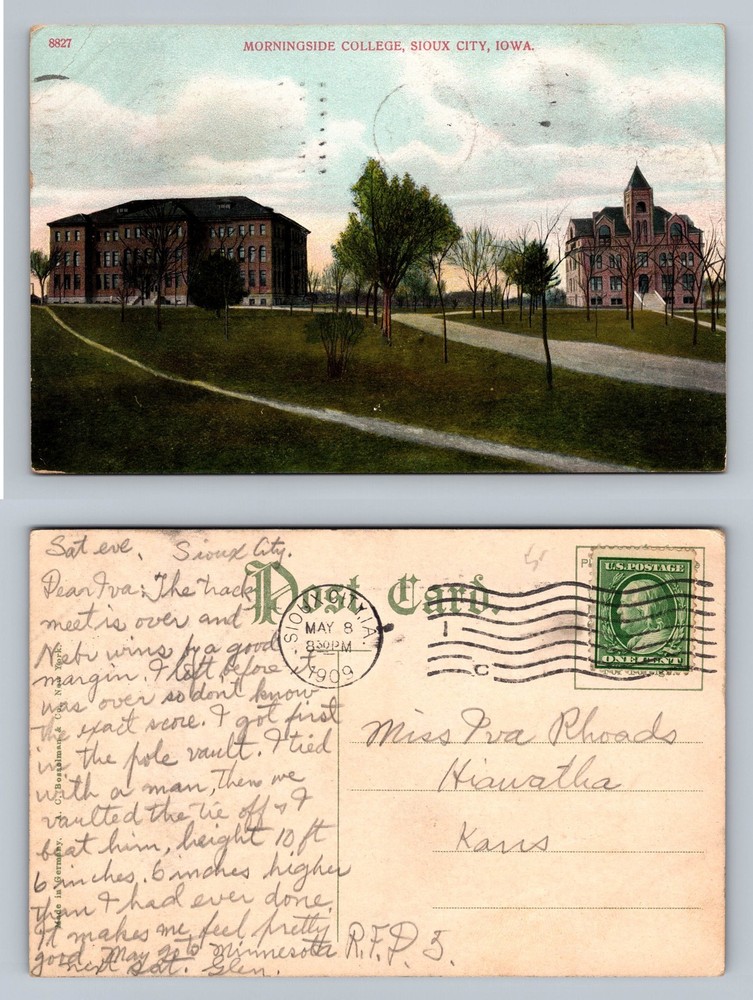 8827
MORNINGSIDE COLLEGE, SIOUX CITY, IOWA.
Sat eve, Sioux City.
Dear Iva: The track
meet is over and
Nebr wins by a good
margin. I left before it
was over so dont know
the exact score. I got first
in the pole vault. I tied
with a man, then we
vaulted the tie off & I
beat him, height 10 ft
6 inches. 6 inches higher
than I had ever done.
It makes me feel pretty
good. May go to Minnesota
next Sat. Glen.
Post Card.
SIOUX CITY, IA
MAY 8
830PM
1909
1
C
U.S. POSTAGE
ONE CENT
Miss Iva Rhoads
Hiawatha
Kans
R.F.D. 5.
Made in Germany. A. C. Bosselman & Co., New York